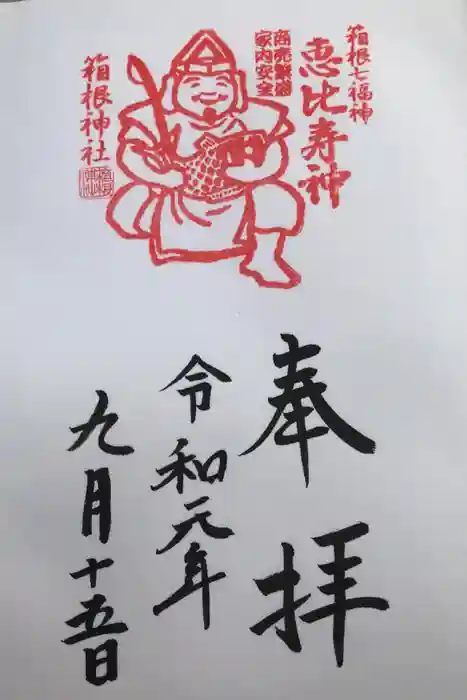 箱根七福神
恵比寿神
商売繁御
家内安全
箱根神社
奉拝
令和元年
九月十五日